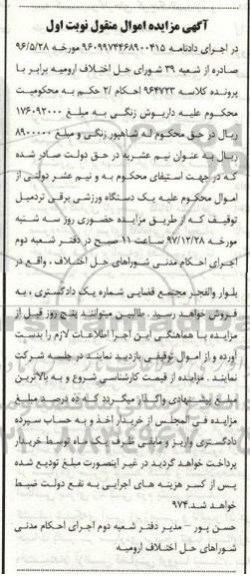 آگهی مزایده اموال منقول نوبت اول
در اجرای دادنامه ۹۶۰۹۹۷۴۴۶۸۹۰۰۴۱۵ مورخه ۹۶/۵/۲۸
صادره از شعبه ۳۹ شورای حل اختلاف ارومیه برابر با
پرونده کلاسه ۹۶۴۷۲۳ احکام /۲ حکم به محکومیت
محکوم علیه داریوش زنگی به مبلغ ۱۷۶۰۹۲۰۰۰
ریال در حق محکوم له شاهپور زنگی و مبلغ ۸۹۰۰۰۰۰
ریال به عنوان نیم عشریه در حق دولت صادر شده
که در جهت استیفای محکوم به و نیم عشر دولتی از
اموال محکوم علیه یک دستگاه ورزشی برقی تردمیل
توقیف که از طریق مزایده حضوری روز سه شنبه
مورخه ۹۷/۱۲/۲۸ ساعت ۱۱ صبح در دفتر شعبه دوم
اجرای احکام مدنی شوراهای حل اختلاف ، واقع در
بلوار والفجر مجتمع قضایی شماره یک دادگستری ، به
فروش خواهد رسید . طالبین میتوانند پنج روز قبل از
مزایده با هماهنگی این اجرا اطلاعات لازم را بدست
آورده و از اموال توقیفی بازدید نمایند در جلسه شرکت
نمایند . مزایده از قیمت کارشناسی شروع و به بالاترین
مبلغ پیشنهادی واگذار میگردد که ده درصد مبلغ
مزایده فی المجلس از خریدار اخذ و به حساب سپرده
دادگستری واریز و مابقی ظرف یک ماه توسط خریدار
پرداخت خواهد گردید در غیر اینصورت مبلغ تودیع شده
پس از کسر هزینه های اجرایی به نفع دولت ضبط
خواهد شد.۹۷۴
حسن پور – مدیر دفتر شعبه دوم اجرای احکام مدنی
شوراهای حل اختلاف ارومیه